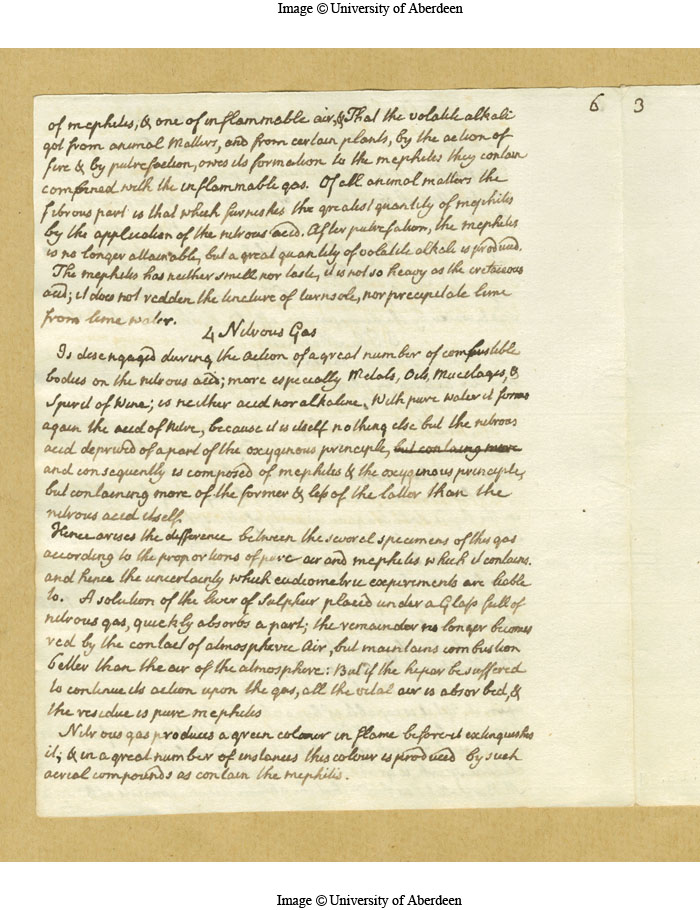 Image © University of Aberdeen
6 3
of mephitis, & one of inflammable air, & That the volatile alkali
got from animal Matters, and from certain plants, by the action of
fire & by putrefaction, owes its formation to the mephites they contain
combined with the inflammable gas. Of all animal matters the
fibrous part is that which furnishes the greatest quantity of mephitis
by the application of the nitrous acid. After putrefation, the mephitis
is no longer attainable, but a great quantity of volatile alkali is produced.
The mephitis has neither smell nor taste, it is not so heavy as the cretaceous
acid; it does not redden the tincture of turnsole, nor precipitate lime
from lime water.
4 Nitrous Gas
Is desengaged during the action of a great number of combustible
bodies on the nitrous acid; more especially Metals, Oils, Mucilages, &
Spirit of Wine; is neither acid nor alkaline. With pure water it forms
again the acid of Nitre, because it is itself nothing else but the nitrous
acid deprived of a part of the oxyginous principle, but containg more
and consequently is composed of mephitis & the oxyginous principle,
but containing more of the former & less of the latter than the
nitrous acid itself.
Hence arises the difference between the several specimens of this gas
according to the proportions of pure air and mephitis which it contains.
and hence the uncertainty which eudiometric experiments are liable
to. A solution of the liver of Sulphur placed under a Glass full of
nitrous gas, quickly absorbs a part; the remainder no longer becomes
red by the contact of atmospheric Air, but maintains combustion
better than the air of the atmosphere: But if the hepar be suffered
to continue its action upon the gas, all the vital air is absorbed, &
the residue is pure mephitis
Nitrous gas produces a green colour in flame before it extinguishes
it; & in a great number of instances this colour is produced by such
aerial compounds as contain the mephitis.
Image © University of Aberdeen